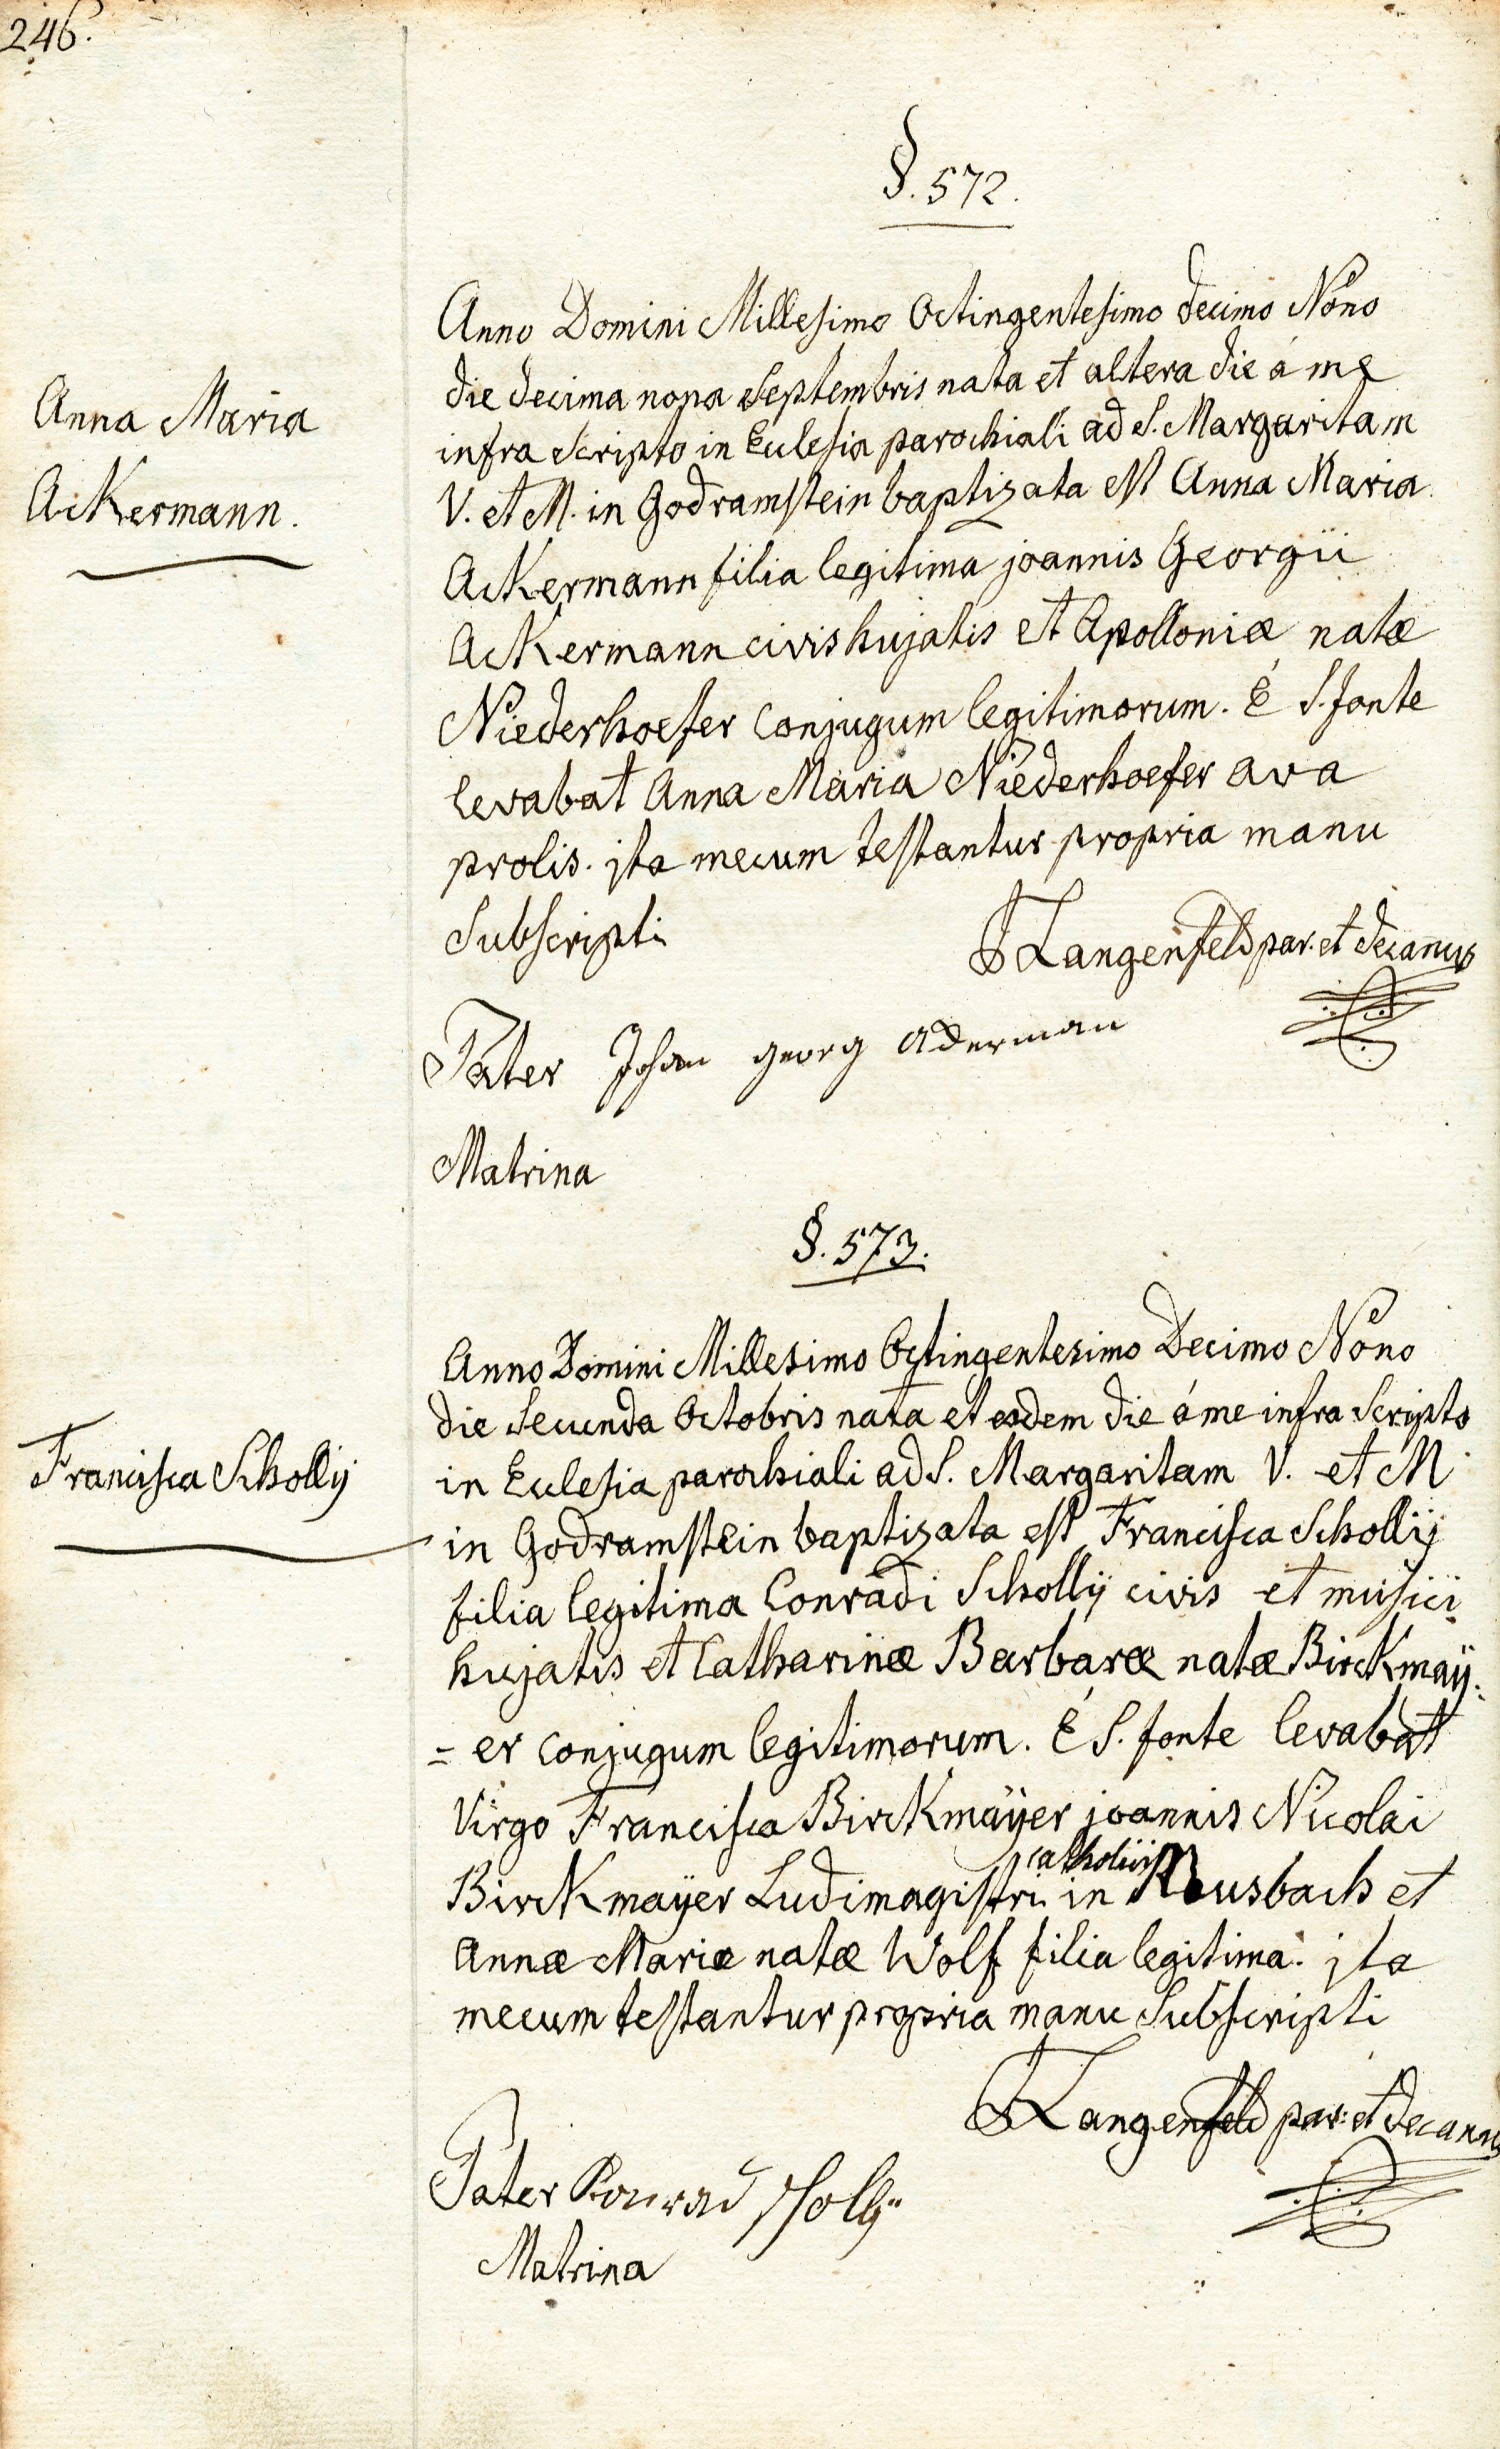 246.
§. 572.
Anna Maria
Ackermann.
Anno Domini Millesimo Octingentesimo decimo Nono
die decima nona Septembris nata et altera die á me
infra Scripto in Ecclesia parochiali ad S. Margaritam
V. et M. in Godramstein baptizata est Anna Maria
Ackermann filia legitima joannis Georgii
Ackermann civis hujatis et Apolloniæ natæ
Niederhoefer Conjugum legitimorum. É S. fonte
levabat Anna Maria Niederhoefer ava
prolis. jta mecum testantur propria manu
Subscripti
Langenfeld par. et decanus
Pater Johan georg Ackerman
Matrina
§. 573.
Francisca Scholly
Anno Domini Millesimo Octingentesimo Decimo Nono
die Secunda Octobris nata et eadem die á me infra Scripto
in Ecclesia parochiali ad S. Margaritam V. et M
in Godramstein baptizata est Francisca Scholly
filia legitima Conradi Scholly civis et musici
hujatis et Catharinæ Barbaræ natæ Birckmaÿ:
= er Conjugum legitimorum. É S. fonte levabat
Virgo Francisca Birckmaÿer joannis Nicolai
catholici
Birckmaÿer Ludimagistri in Busbach et
Annæ Mariæ natæ Wolf filia legitima. jta
mecum testantur propria manu Subscripti
Langenfeld par: et decanus
Pater Konrad Scholly
Matrina